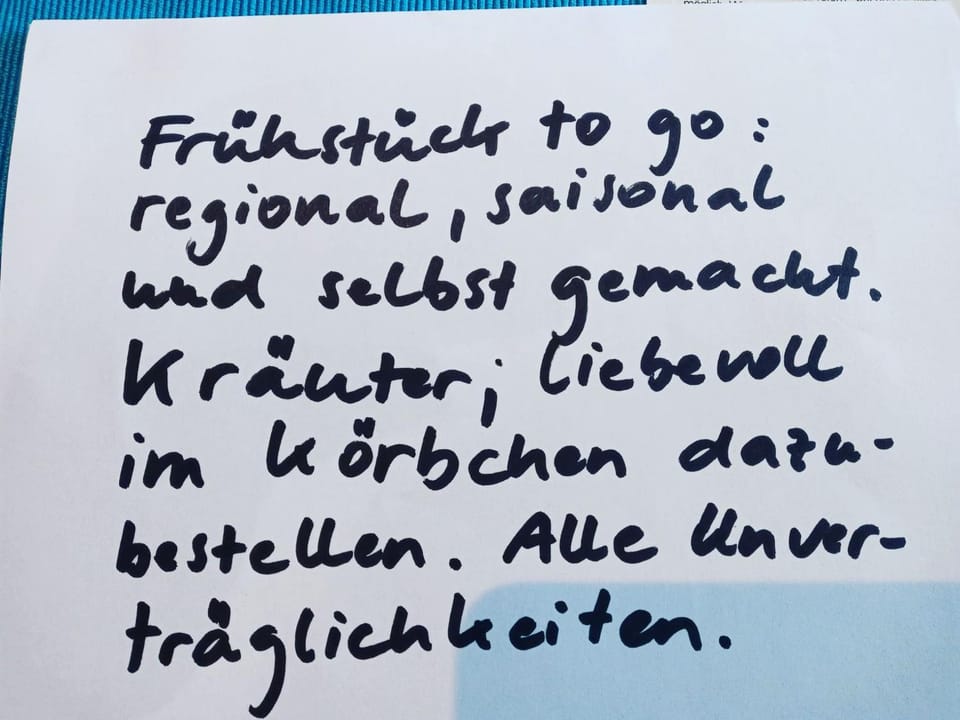 Frühstück to go:
regional, saisonal
und selbst gemacht.
Kräuter; liebevoll
im Körbchen dazu-
bestellen. Alle Unver-
träglichkeiten.